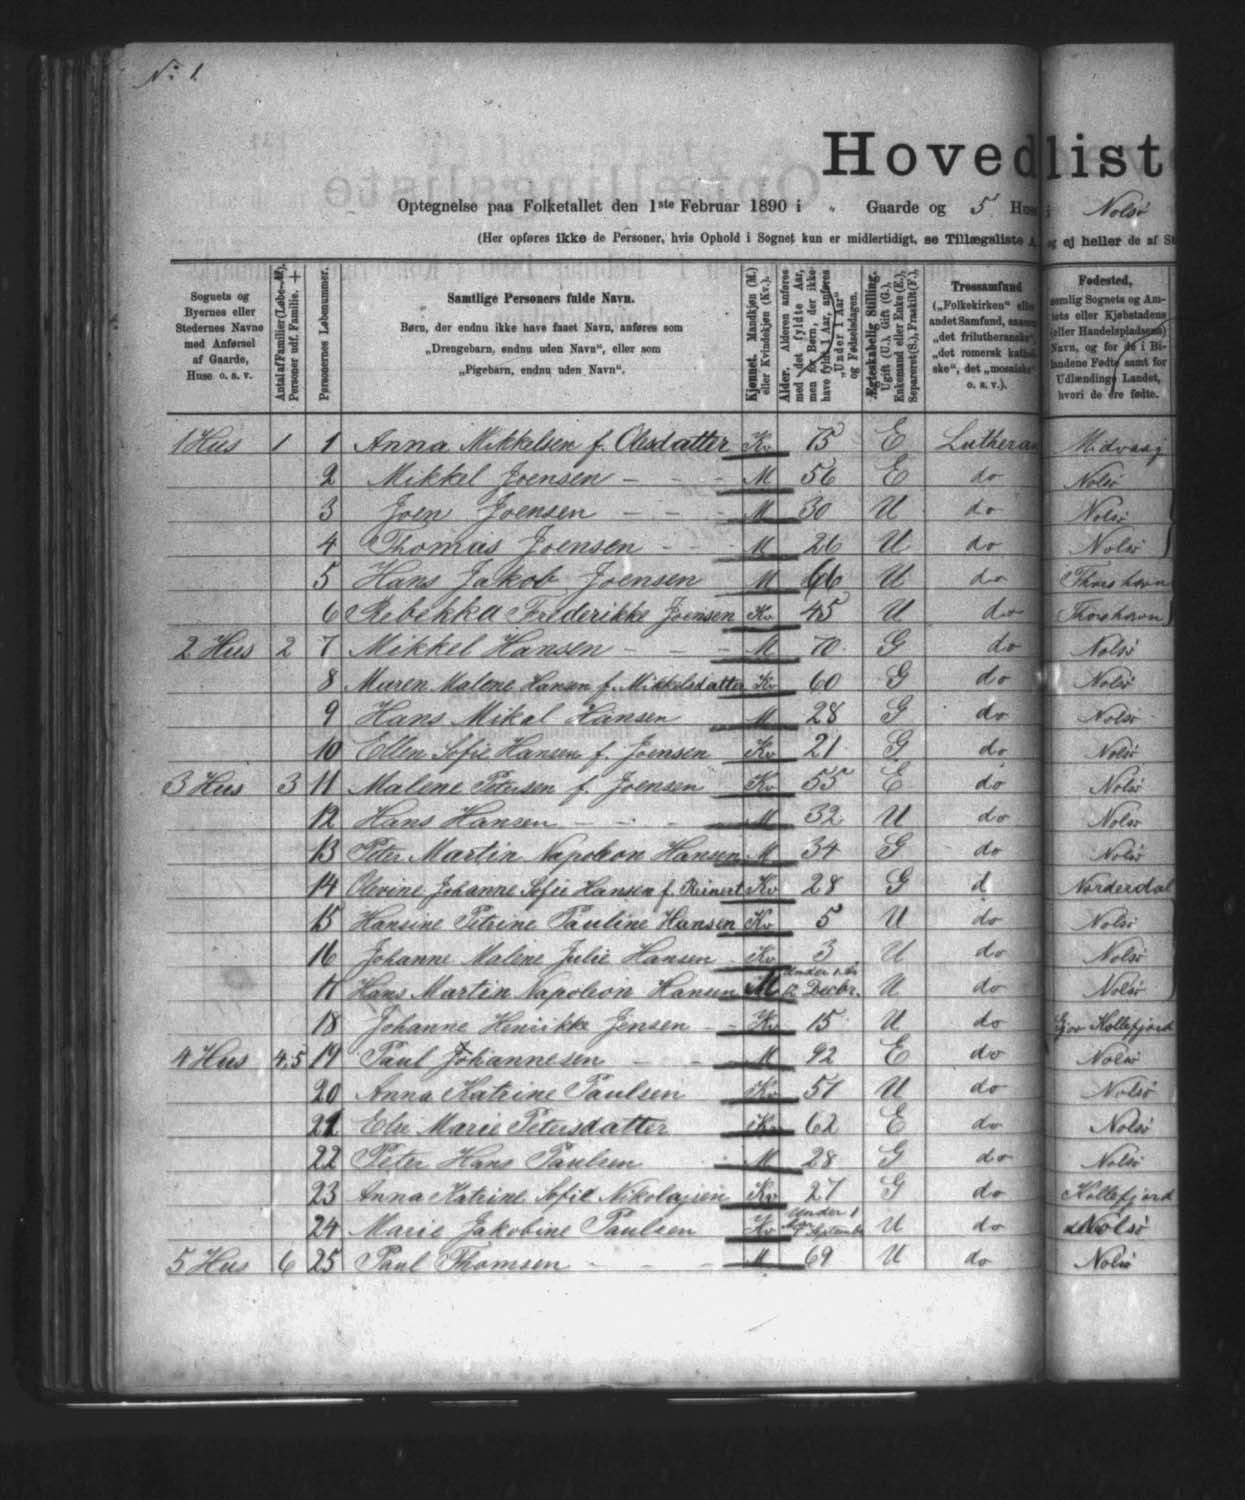 No 1
Hovedliste
Optegnelse paa Folketallet den 1ste Februar 1890 i " Gaarde og 5 Huse i Nolsö
(Her opføres ikke de Personer, hvis Ophold i Sognet kun er midlertidigt, se Tillægsliste A, og ej heller de af
Sognets og Byernes eller Stedernes Navne med Anførsel af Gaarde, Huse o. s. v.
Antal af Familier (Løbe-№). Personer udf. Familie. +
Personernes Løbenummer.
Samtlige Personers fulde Navn.
Børn, der endnu ikke have faaet Navn, anføres som
„Drengebarn, endnu uden Navn", eller som
„Pigebarn, endnu uden Navn".
Kjønnet. Mandkjøn (M.) eller Kvindekjøn (Kv.).
Alder. Alderen anføres med det fyldte Aar, men for Børn, der ikke have fyldt 1 Aar, anføres „Under 1 Aar" og Fødselsdagen.
Ægteskabelig Stilling. Ugift (U.), Gift (G.), Enkemand eller Enke (E.), Separeret (S.), Fraskilt (F.).
Trossamfund („Folkekirken" eller andet Samfund, saasom „det frilutheranske", „det romersk katholske", det „mosaiske" o. s. v.).
Fødested, nemlig Sognets og Amtets eller Kjøbstadens (eller Handelspladsens) Navn, og for de i Bilandene Fødte samt for Udlændinge Landet, hvori de ere fødte.
1 Hus 1 1 Anna Mikkelsen f. Olesdatter Kv 75 E Lutheran Midvaag
2 Mikkel Joensen - - - M 56 E do Nolsö
3 Joen Joensen - - - M 30 U do Nolsö
4 Thomas Joensen - - M 26 U do Nolsö
5 Hans Jakob Joensen M 66 U do Thorshavn
6 Rebekka Frederikke Joensen Kv 45 U do Thorshavn
2 Hus 2 7 Mikkel Hansen - - - M 70 G do Nolsö
8 Maren Malene Hansen f. Mikkelsdatter Kv 60 G do Nolsö
9 Hans Mikal Hansen M 28 G do Nolsö
10 Ellen Sofie Hansen f. Joensen Kv 21 G do Nolsö
3 Hus 3 11 Malene Petersen f. Joensen Kv 55 E do Nolsö
12 Hans Hansen - - - M 32 U do Nolsö
13 Peter Martin Napoleon Hansen M 34 G do Nolsö
14 Olevine Johanne Sofie Hansen f. Reinert Kv 28 G d Norderdal
15 Hansine Petrine Pauline Hansen Kv 5 U do Nolsö
16 Johanne Malene Julie Hansen Kv 3 U do Nolsö
17 Hans Martin Napoleon Hansen M Under 1 Aar 12 Decbr. U do Nolsö
18 Johanne Henrikke Jensen - Kv 15 U do Kollefjord
4 Hus 4,5 19 Paul Johannesen - - M 92 E do Nolsö
20 Anna Katrine Paulsen Kv 51 U do Nolsö
21 Else Marie Petersdatter Kv 62 E do Nolsö
22 Peter Hans Paulsen M 28 G do Nolsö
23 Anna Katrine Sofie Nikolajsen Kv 27 G do Kollefjord
24 Marie Jakobine Paulsen Kv Under 1 Aar September U do Nolsö
5 Hus 6 25 Paul Thomsen - - - M 69 U do Nolsö